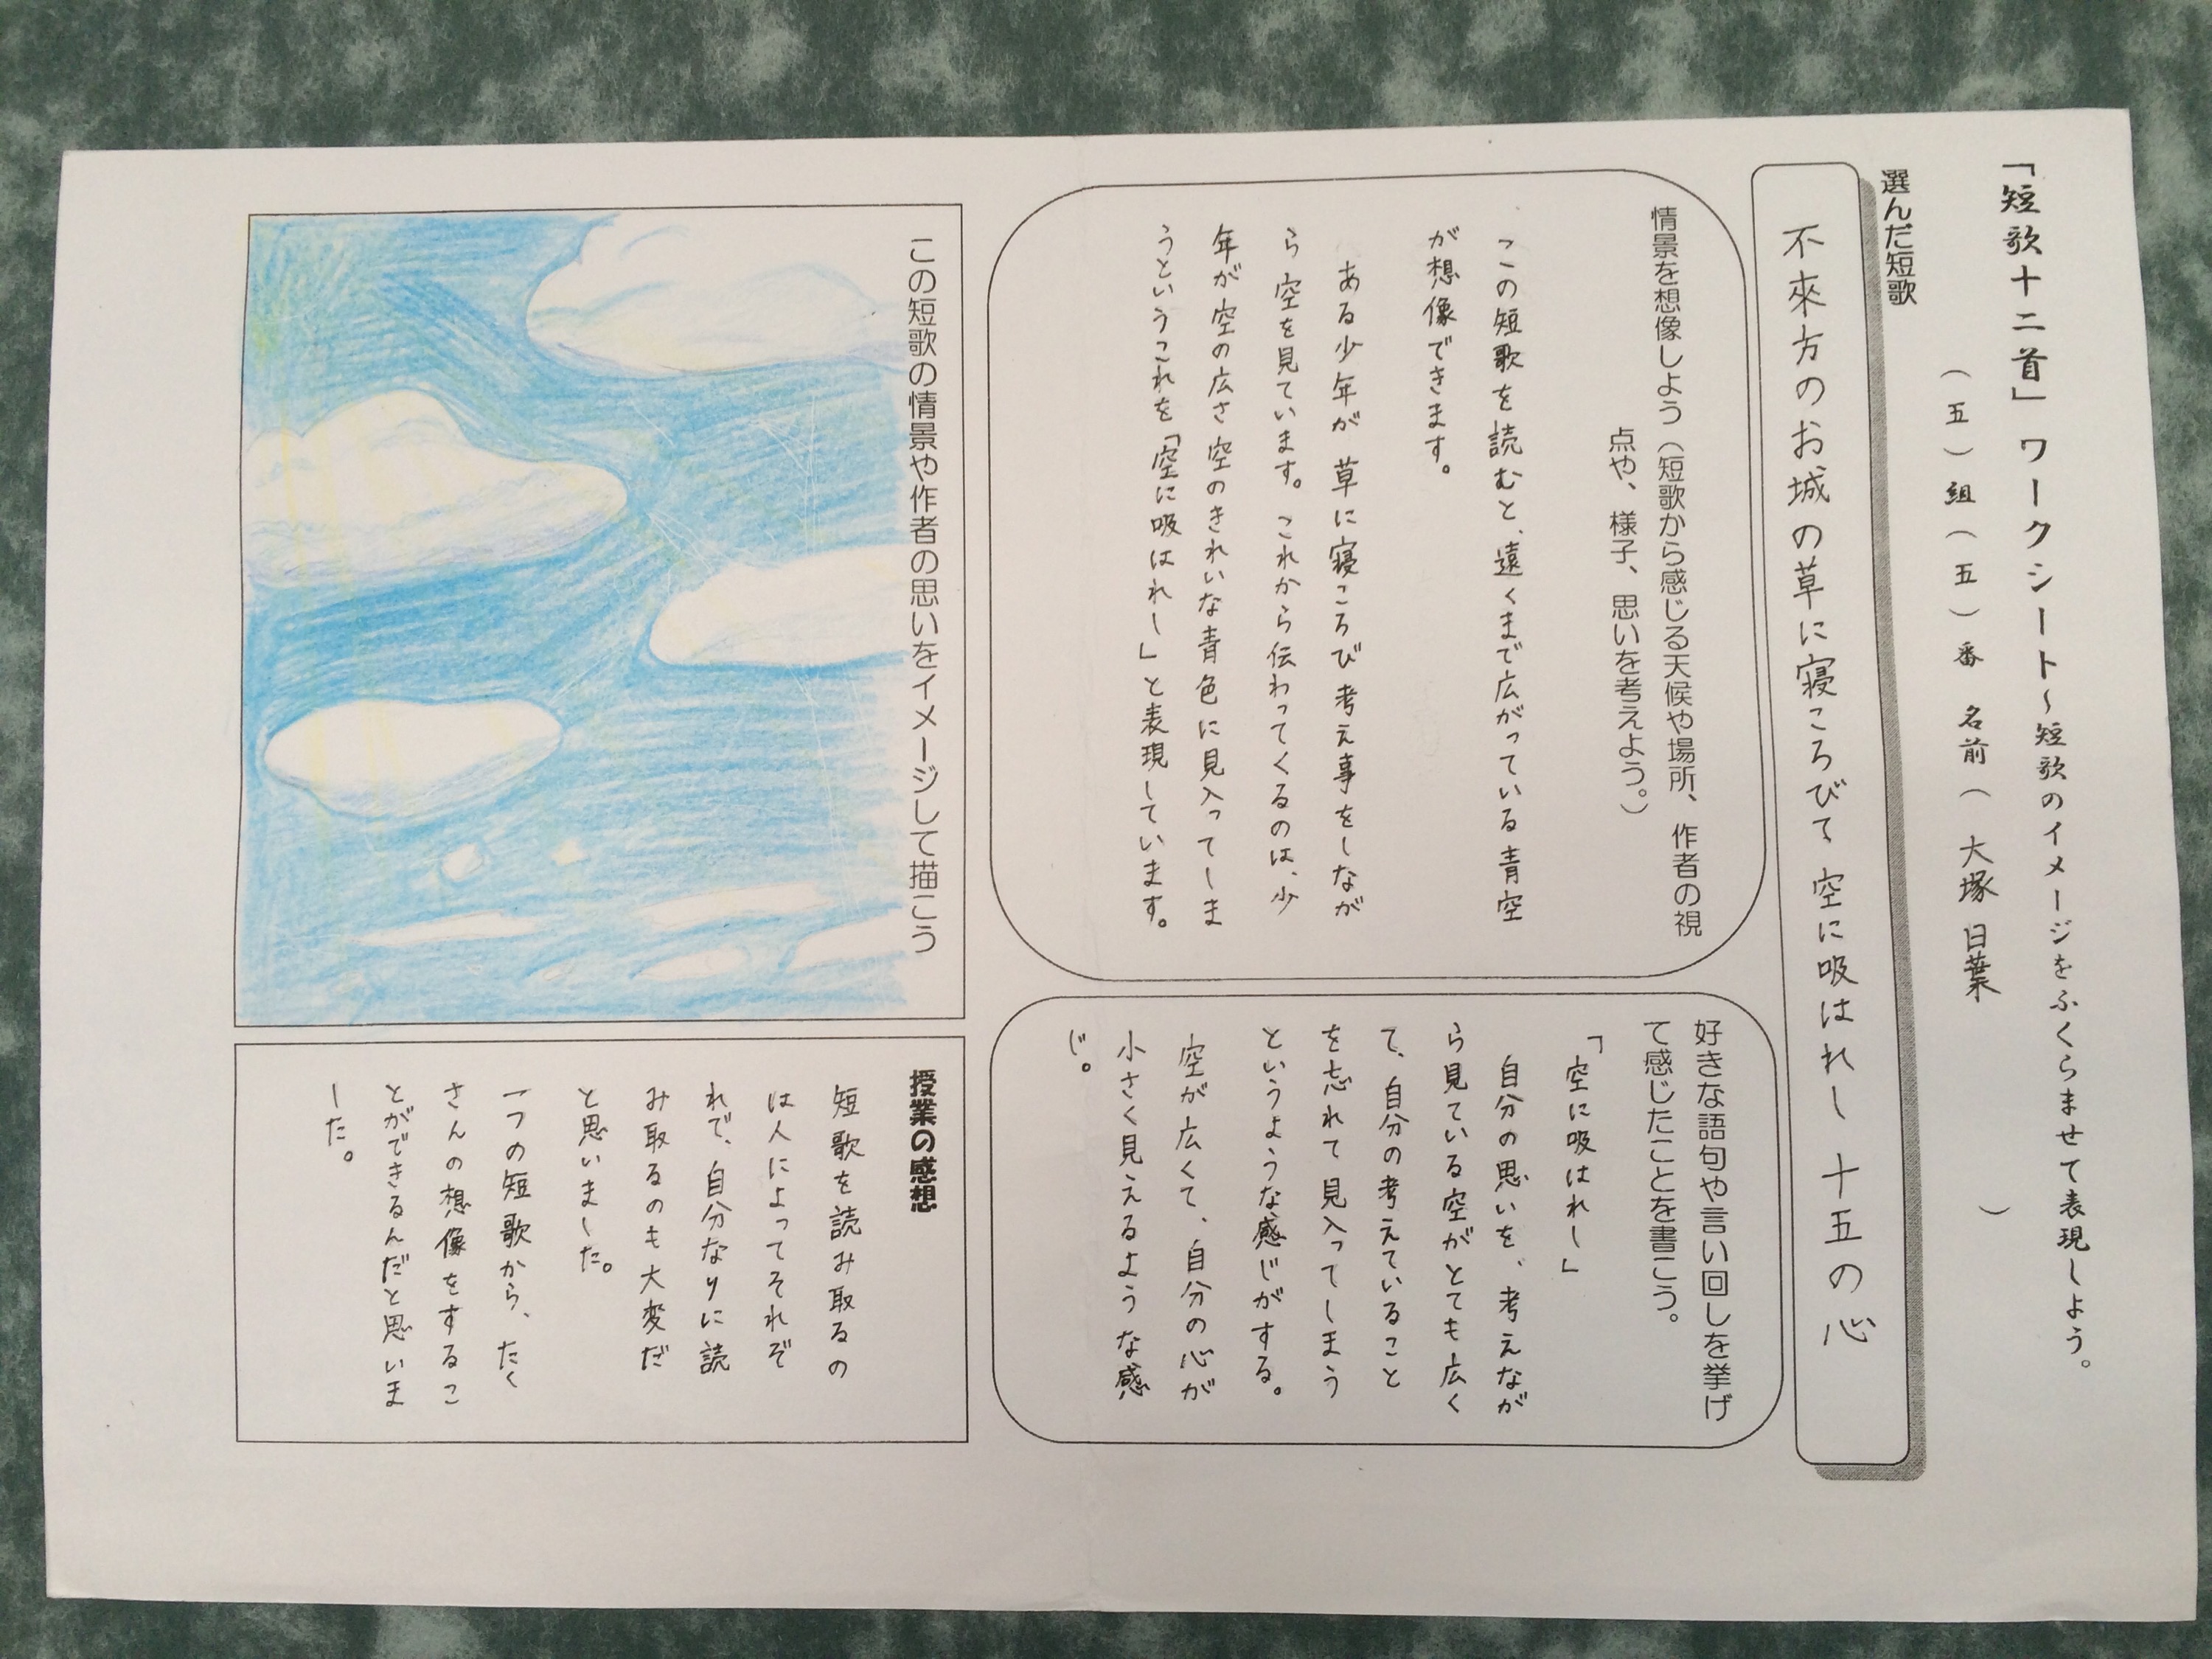 「短歌十二首」ワークシート～短歌のイメージをふくらませて表現しよう。
（五）組（五）番 名前（ 大塚 日葉 ）
選んだ短歌
不來方のお城の草に寝ころびて 空に吸はれし 十五の心
情景を想像しよう（短歌から感じる天候や場所、作者の視
点や、様子、思いを考えよう。）
この短歌を読むと、遠くまで広がっている青空
が想像できます。
ある少年が 草に寝ころび 考え事をしなが
ら 空を見ています。これから伝わってくるのは、少
年が 空の広さ 空のきれいな青色に見入ってしま
うというこれを「空に吸はれし」と表現しています。
好きな語句や言い回しを挙げ
て感じたことを書こう。
「空に吸はれし」
自分の思いを、考えなが
ら見ている空がとても広く
て、自分の考えていること
を忘れて見入ってしまう
というような感じがする。
空が広くて、自分の心が
小さく見えるような感
じ。
この短歌の情景や作者の思いをイメージして描こう
授業の感想
短歌を読み取るの
は人によってそれぞ
れで、自分なりに読
み取るのも大変だ
と思いました。
一つの短歌から、たく
さんの想像をするこ
とができるんだと思いま
した。